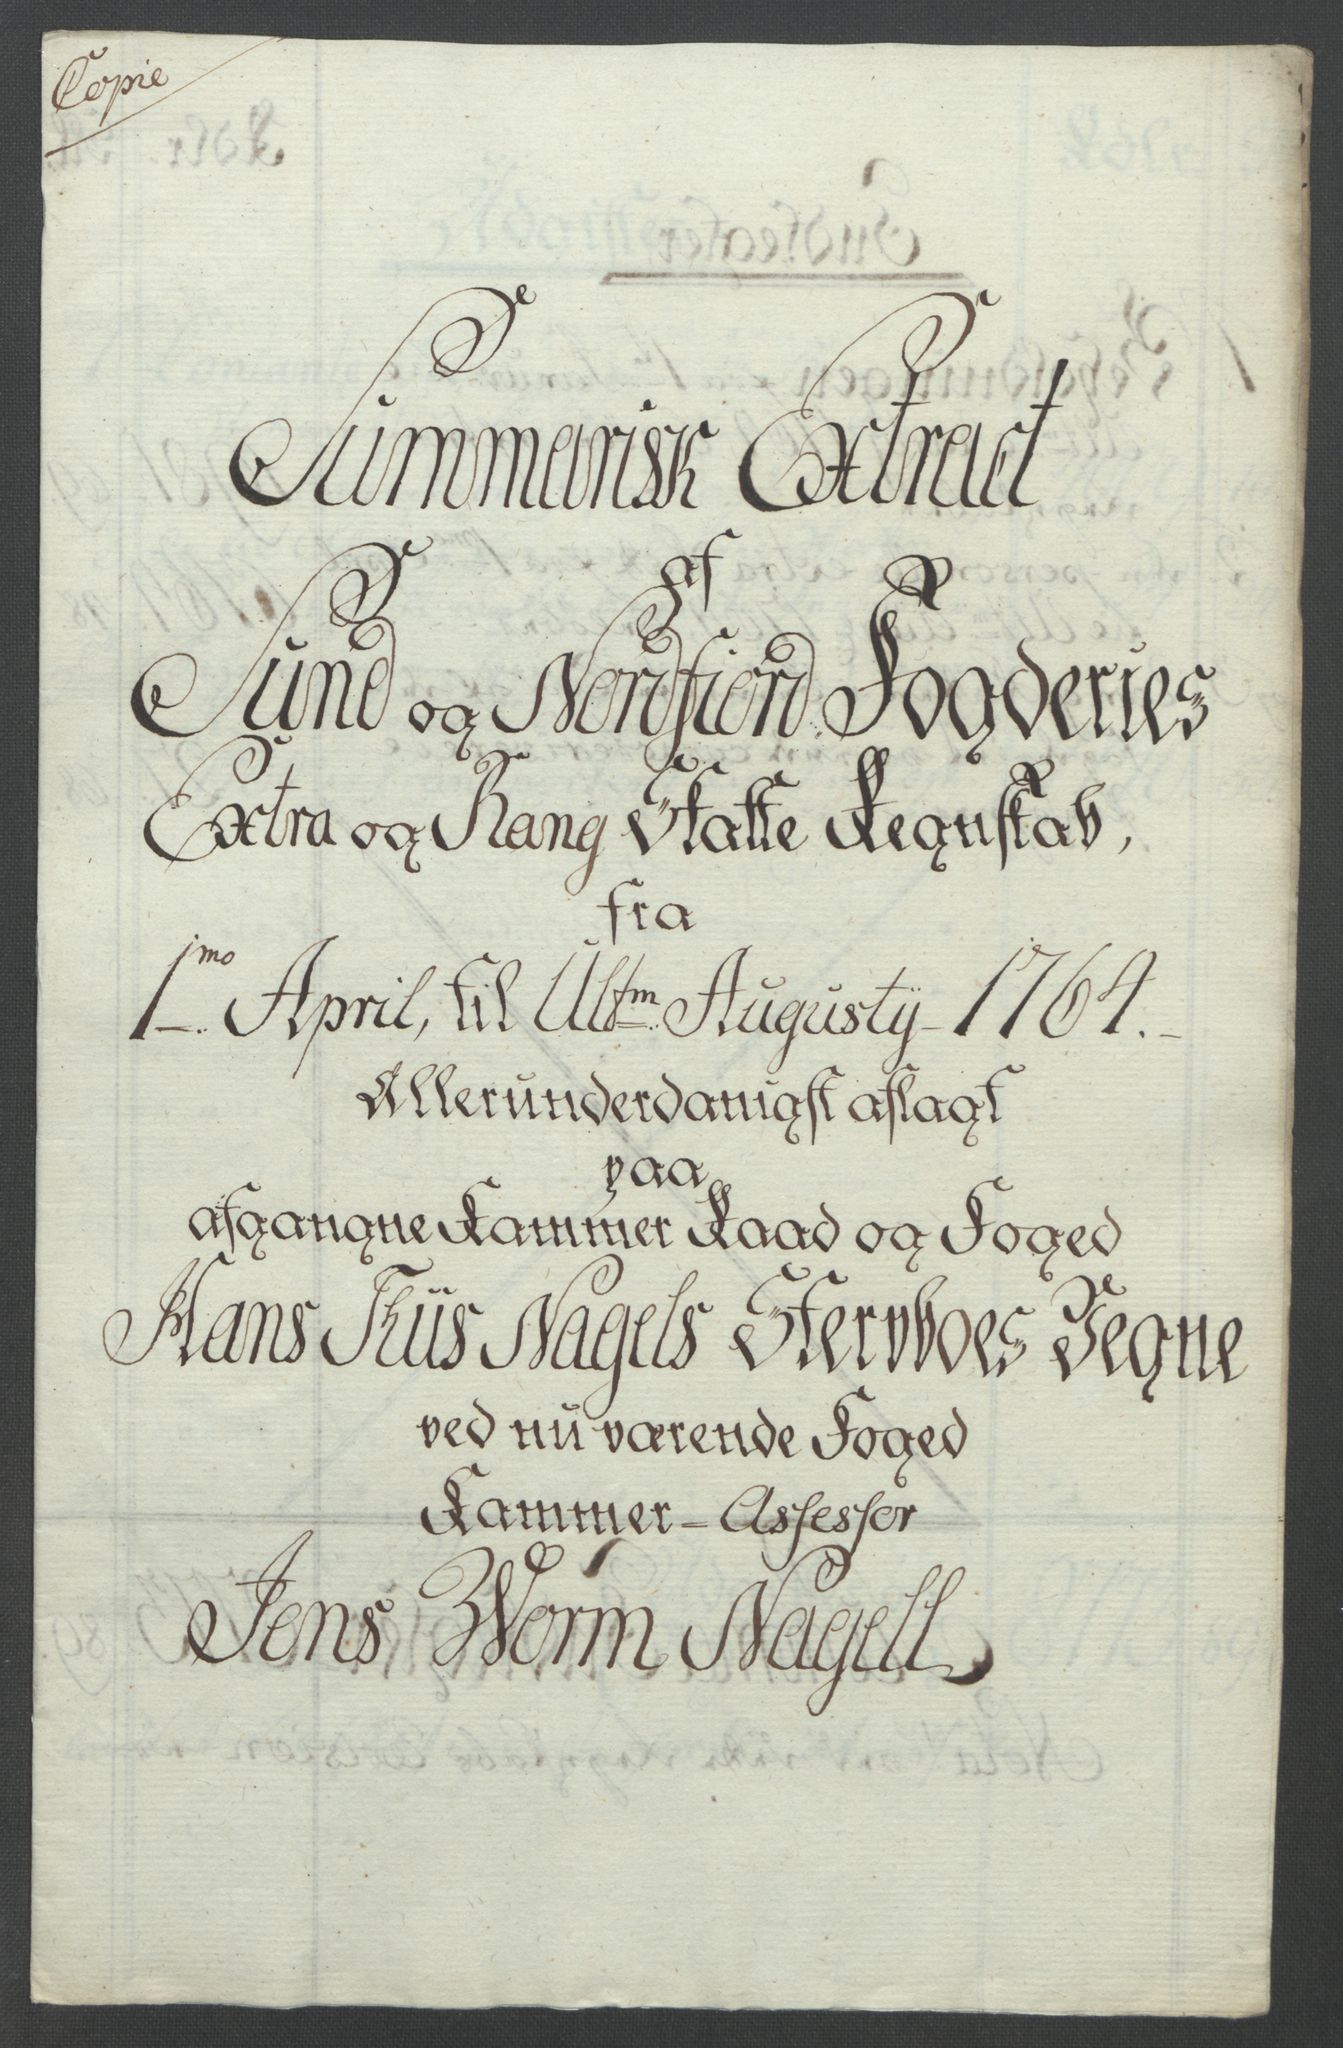 Copie
Summarisk Extract
af
Sund og Nordfiord Fogderies
Extra og Rang Skatte Regnskab,
fra
1mo April, til Ultm Augustÿ 1764.
Allerunderdanigst aflagt
paa
afgangne Kammer Raad og Foged
Hans Thiis Nagels Stervboes Vegne
ved nu værende Foged
Kammer-Assessor
Jens Worm Nagell